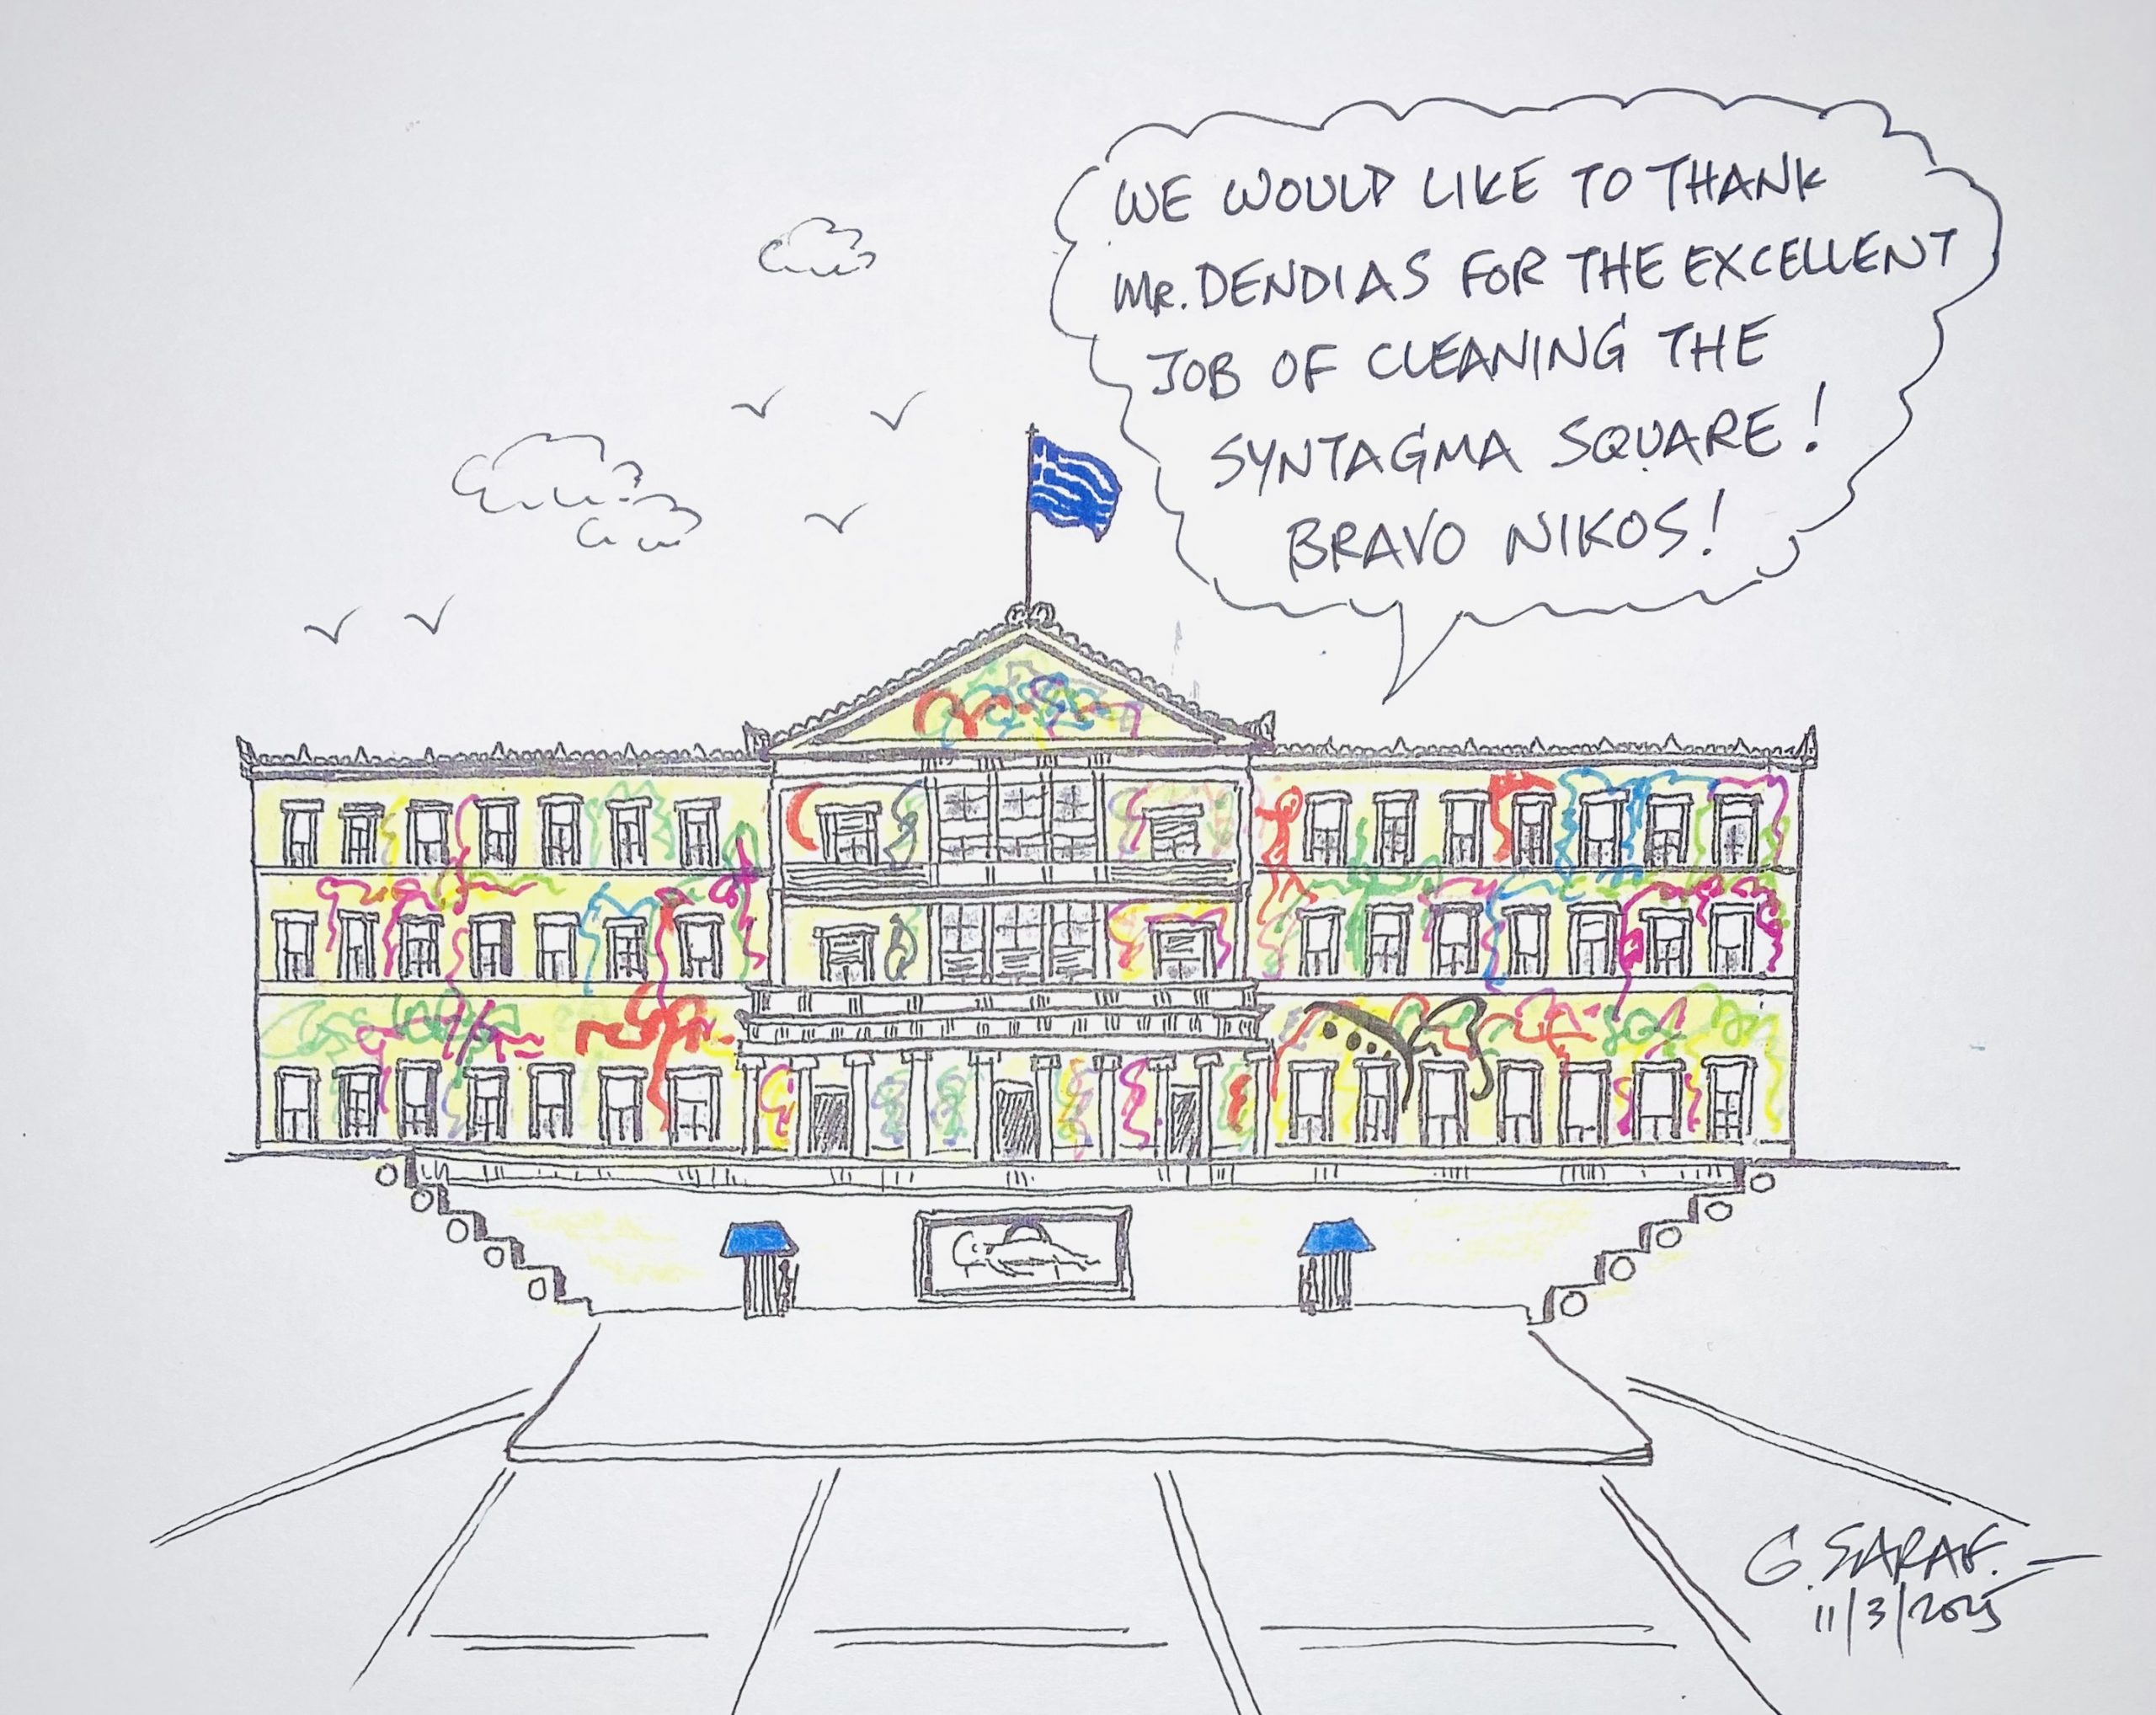 WE WOULD LIKE TO THANK
Mr. DENDIAS FOR THE EXCELLENT
JOB OF CLEANING THE
SYNTAGMA SQUARE!
BRAVO NIKOS!
G. SARAF.
11/3/2025